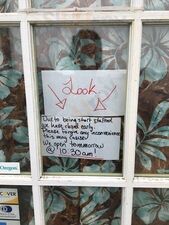 Look
Due to being short staffed
we have closed early.
Please forgive any inconvenience
this may cause
We open tommorrow
@ 10:30am!
Oregon